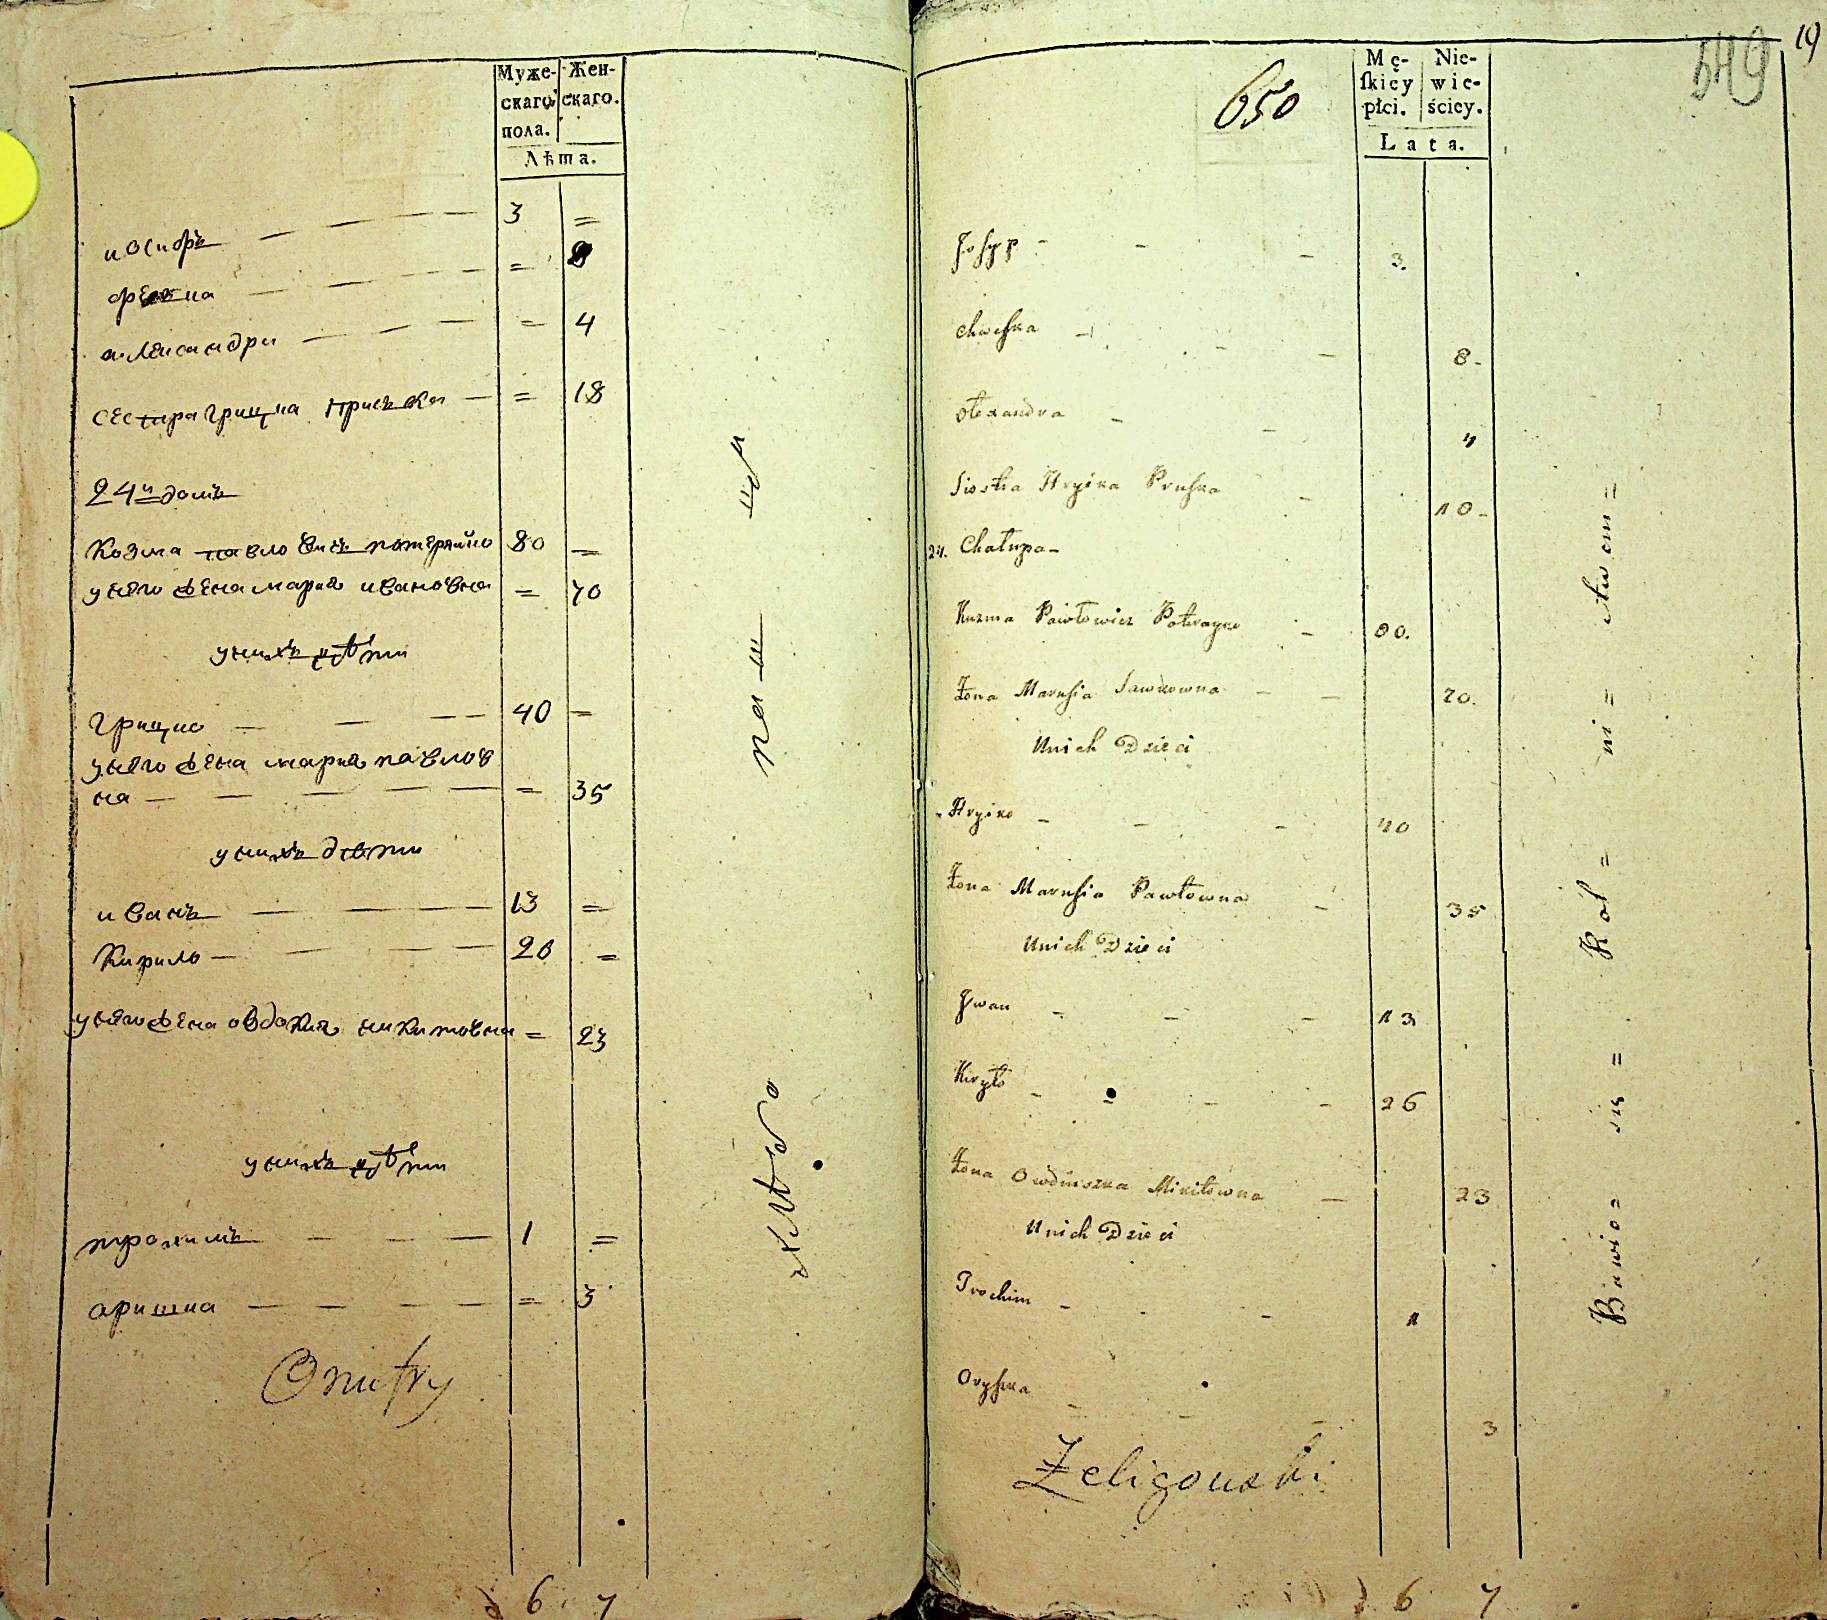 Муже- Жен-
скаго скаго.
пола.
Лѣта.
иосифъ — — — — 3 =
— — — = 8
александри — — — = 4
сестра грицка приська — = 18
24й домъ
козма павловичъ потерайко 80 =
унего жена мария ивановна = 70
унихъ дѣти
грицко — — — 40 =
унего жена мария павлов
на — — — — — = 35
унихъ дѣти
иванъ — — — 13 =
кирило — — — 26 =
унего жена овдокия никитовна = 23
унихъ дѣти
трохимъ — — — 1 =
аришка — — — — = 3
Onufry
6 7
650
549
19
Mę- Nie-
skiey wie-
płci. ściey.
Lata.
Josyp - - - 3.
Chweska - - - 8-
Olexandra - - 4
Siostra Hryćka Pryska - 18-
24. Chałupa-
Kuzma Pawłowicz Poterayko - 80.
Żona Marysia Iawkowna - - 70.
Unich Dzieci
Hryćko - - - 40
Żona Marysia Pawłowna - 35
Unich Dzieci
Jwan - - - 13
Kiryło - - - - 26
Żona Owdiuszka Mikitowna — 23
Unich Dzieci
Trochim - - - 1
Oryszka - - - 3
Żeligowski
6 7